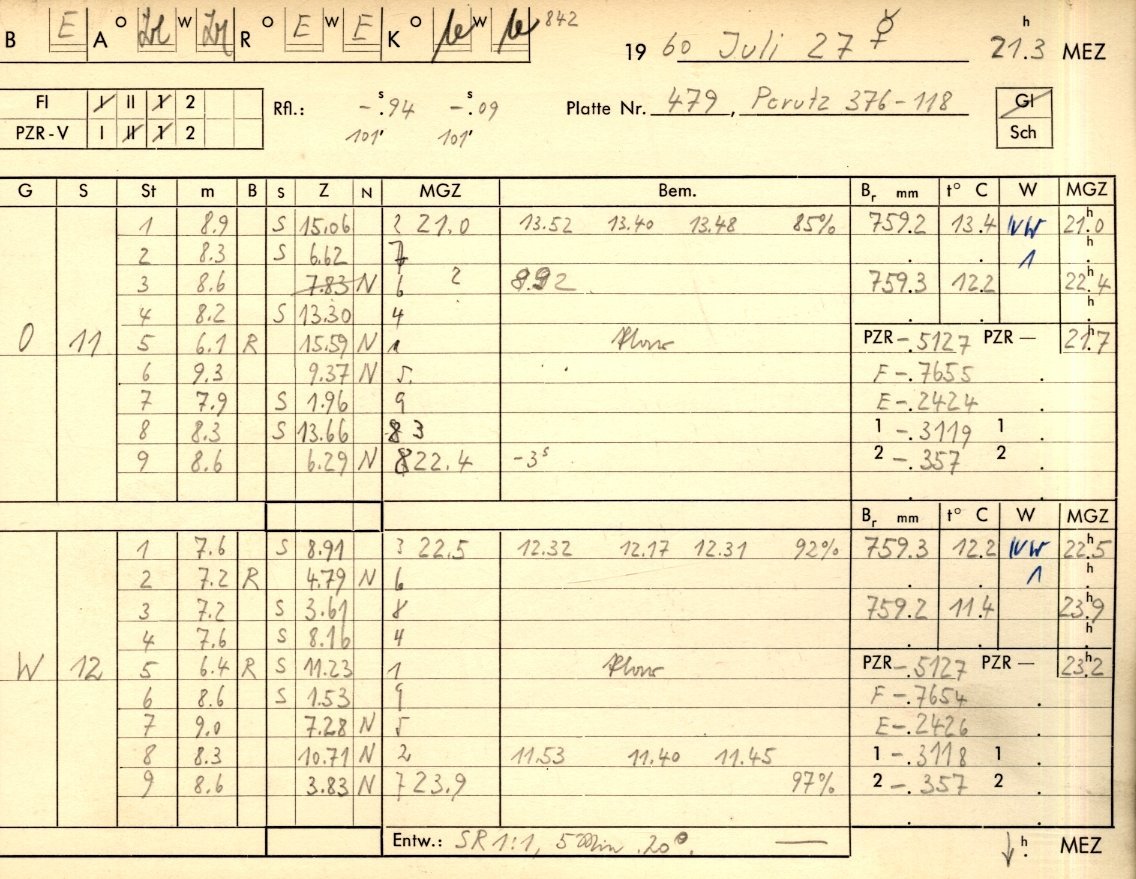 B E A O W R O E W E K O W 842
1960 Juli 27 ☿ 21.3 h MEZ
Fl I II 1 2 Rfl.: -.s94 -.s09 Platte Nr. 479, Perutz 376-118 Gl
PZR-V I II 1 2 101' 101' Sch
G S St m B S Z N MGZ Bem. Br mm t° C W MGZ
1 8.9 S 15.06 2 21.0 13.52 13.40 13.48 85% 759.2 13.4 NW 21.h0
2 8.3 S 6.62 7 . . 1 .h
3 8.6 7.83 N 6 2 8.92 759.3 12.2 22.h4
4 8.2 S 13.30 4 . . .h
O 11 5 6.1 R 15.59 N 1 PZR -.5127 PZR — 21.h7
6 9.3 9.37 N 5. F -.7655 .
7 7.9 S 1.96 9 E -.2424 .
8 8.3 S 13.66 8 3 1 -.3119 1 .
9 8.6 6.29 N 8 22.4 -3s 2 -.357 2 .
Br mm t° C W MGZ
1 7.6 S 8.91 3 22.5 12.32 12.17 12.31 92% 759.3 12.2 NW 22.h5
2 7.2 R 4.79 N 6 . . 1 .h
3 7.2 S 3.61 8 759.2 11.4 23.h9
4 7.6 S 8.16 4 . . .h
W 12 5 6.4 R S 11.23 1 PZR -.5127 PZR — 23.h2
6 8.6 S 1.53 9 F -.7654 .
7 9.0 7.28 N 5 E -.2426 .
8 8.3 10.71 N 2 11.53 11.40 11.45 1 -.3118 1 .
9 8.6 3.83 N 7 23.9 97% 2 -.357 2 .
Entw.: SR 1:1, 5 Min .20°. — h. MEZ